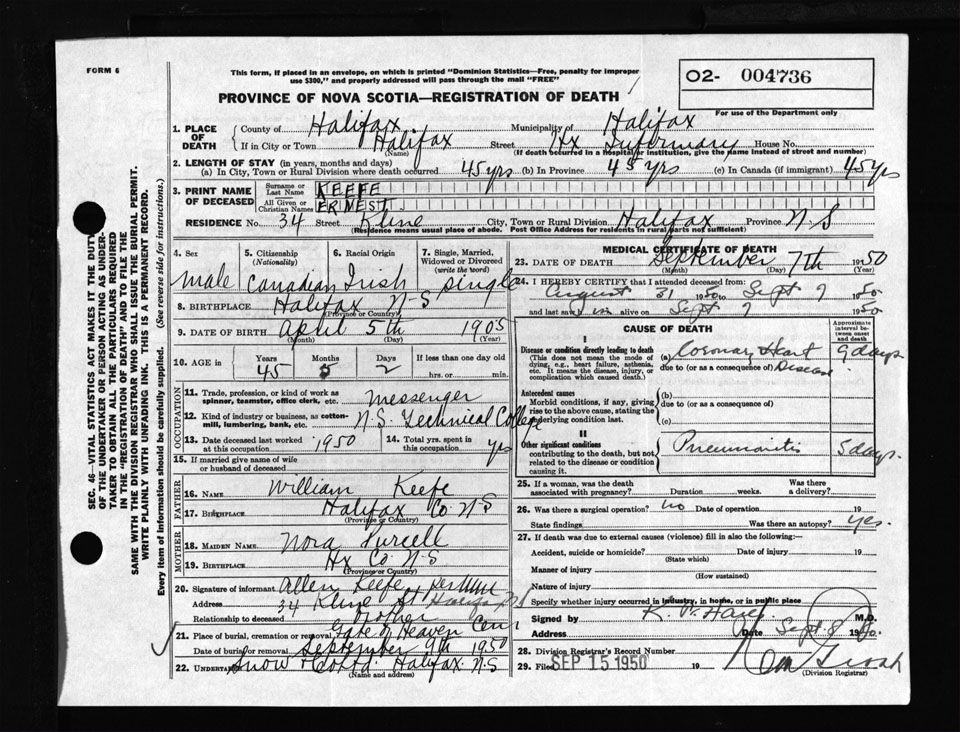 FORM 6
This form, if placed in an envelope, on which is printed "Dominion Statistics—Free, penalty for improper
use $300," and properly addressed will pass through the mail "FREE"
02- 004736
PROVINCE OF NOVA SCOTIA—REGISTRATION OF DEATH
For use of the Department only
1. PLACE OF DEATH
County of Halifax Municipality of Halifax
If in City or Town Halifax Street Hx Infirmary House No.
(Name) (If death occurred in a hospital or institution, give the name instead of street and number)
2. LENGTH OF STAY (in years, months and days)
(a) In City, Town or Rural Division where death occurred 45 yrs (b) In Province 45 yrs (c) In Canada (if immigrant) 45 yrs
3. PRINT NAME OF DECEASED
Surname or Last Name KEEFE
All Given or Christian Names ERNEST
RESIDENCE No. 34 Street Kline City, Town or Rural Division Halifax Province N-S
(Residence means usual place of abode. Post Office Address for residents in rural parts not sufficient)
4. Sex
male
5. Citizenship (Nationality)
Canadian
6. Racial Origin
Irish
7. Single, Married, Widowed or Divorced (write the word)
single
8. BIRTHPLACE Halifax N-S
(Province or Country)
9. DATE OF BIRTH April 5th 1905
(Month) (Day) (Year)
10. AGE in
Years Months Days If less than one day old
45 5 2 hrs. or min.
OCCUPATION
11. Trade, profession, or kind of work as spinner, teamster, office clerk, etc. messenger
12. Kind of industry or business, as cotton-mill, lumbering, bank, etc. N.S. Technical College
13. Date deceased last worked at this occupation 1950
14. Total yrs. spent in this occupation yrs
15. If married give name of wife or husband of deceased
FATHER
16. NAME William Keefe
17. Birthplace Halifax Co. N-S
(Province or Country)
MOTHER
18. MAIDEN NAME Nora Purcell
19. BIRTHPLACE Hx Co. N-S
(Province or Country)
20. Signature of informant Allen Keefe
Address 34 Kline St Halifax
Relationship to deceased Brother
21. Place of burial, cremation or removal Gate of Heaven Cem
Date of burial or removal September 9th 1950
22. UNDERTAKER Snow & Co Ltd. Halifax N-S
(Name and address)
MEDICAL CERTIFICATE OF DEATH
23. DATE OF DEATH September 7th 1950
(Month) (Day) (Year)
24. I HEREBY CERTIFY that I attended deceased from:
August 31 1950 to Sept 7 1950
and last saw him alive on Sept 7 1950
CAUSE OF DEATH
Approximate interval between onset and death
I
Disease or condition directly leading to death
(This does not mean the mode of dying, e.g., heart failure, asthenia, etc. It means the disease, injury, or complication which caused death.)
(a) Coronary Heart Disease 9 days
due to (or as a consequence of)
Antecedent causes
Morbid conditions, if any, giving rise to the above cause, stating the underlying condition last.
(b)
due to (or as a consequence of)
(c)
II
Other significant conditions
contributing to the death, but not related to the disease or condition causing it.
Pneumonitis 5 days.
25. If a woman, was the death associated with pregnancy? Duration weeks. Was there a delivery?
26. Was there a surgical operation? no Date of operation 19
State findings Was there an autopsy? yes.
27. If death was due to external causes (violence) fill in also the following:—
Accident, suicide or homicide? Date of injury 19
(State which)
Manner of injury
(How sustained)
Nature of injury
Specify whether injury occurred in industry, in home, or in public place
Signed by M.D.
Address Date Sept 8 1950
28. Division Registrar's Record Number
29. Filed SEP 15 1950 19
(Division Registrar)
SEC. 46—VITAL STATISTICS ACT MAKES IT THE DUTY
OF THE UNDERTAKER OR PERSON ACTING AS UNDER-
TAKER TO OBTAIN ALL THE PARTICULARS REQUIRED
IN THE "REGISTRATION OF DEATH" AND TO FILE THE
SAME WITH THE DIVISION REGISTRAR WHO SHALL ISSUE THE BURIAL PERMIT.
WRITE PLAINLY WITH UNFADING INK. THIS IS A PERMANENT RECORD.
Every item of information should be carefully supplied. (See reverse side for instructions.)